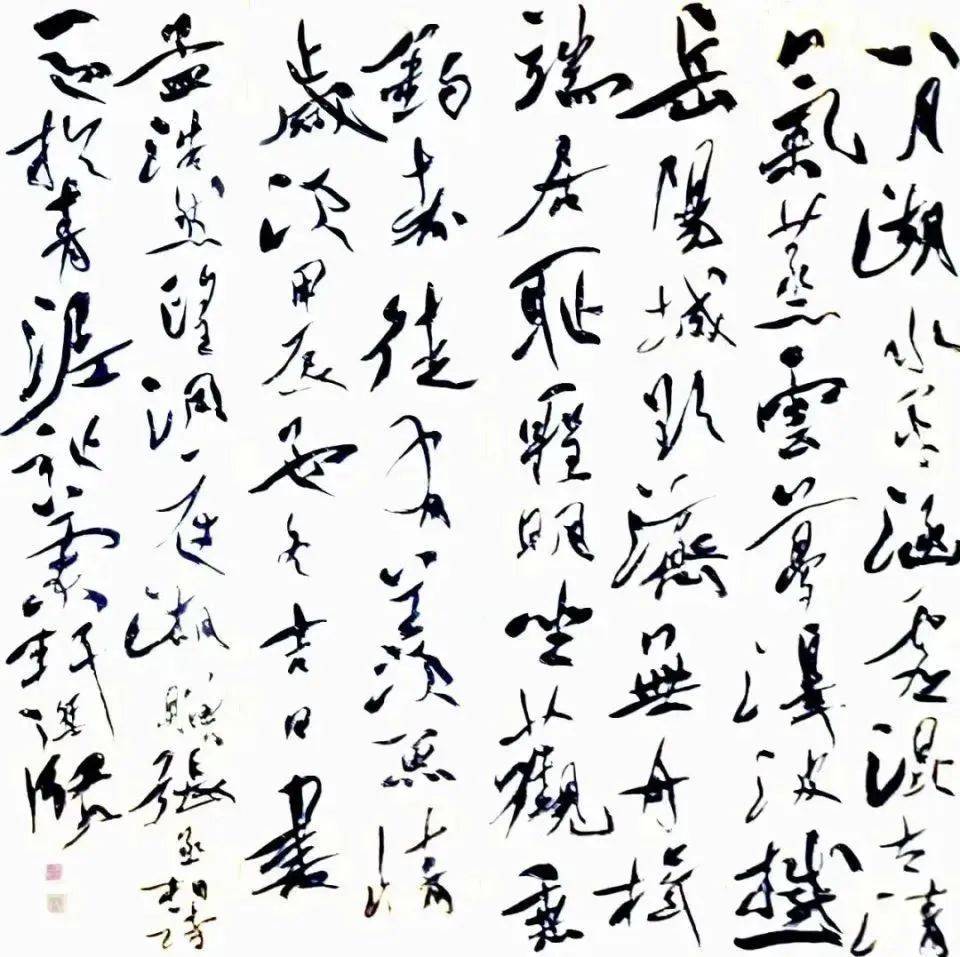 八月湖水平涵虚混太清
氣蒸雲夢澤波撼
岳陽城欲濟無舟楫
端居恥聖明坐觀垂
釣者徒有羡魚情
歲次甲辰孟冬吉日書
孟浩然望洞庭湖贈張丞相詩
於青